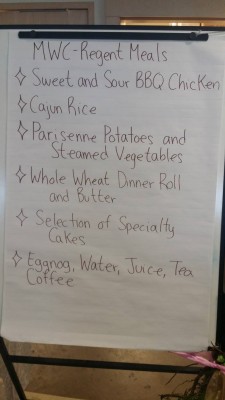 MWC-Regent Meals
Sweet and Sour BBQ Chicken
Cajun Rice
Parisenne Potatoes and
Steamed Vegetables
Whole Wheat Dinner Roll
and Butter
Selection of Specialty
Cakes
Eggnog, Water, Juice, Tea
Coffee